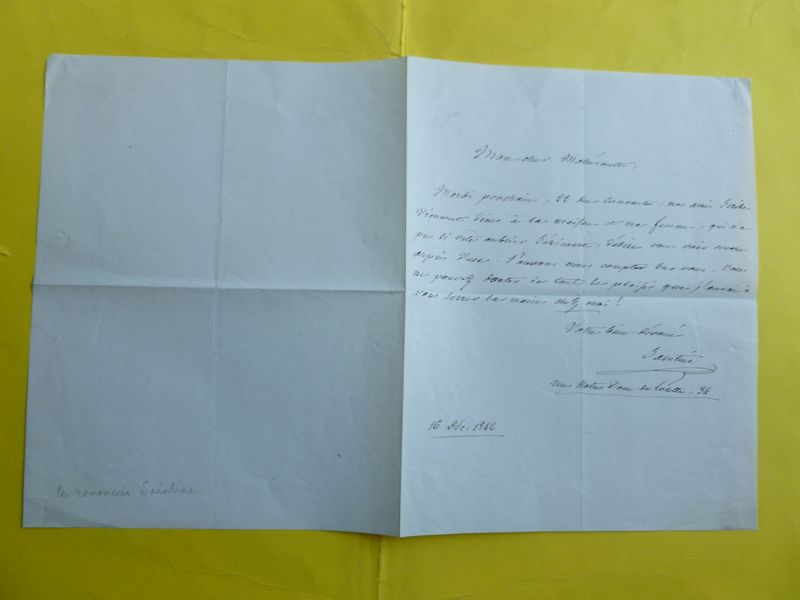 Mon cher Mahérault,
Mardi prochain, 22 du courant, nos amis
viennent dîner à la maison et ma femme, qui n'a
pu si vite oublier, désire vous voir encore
auprès d'eux. Pouvons nous compter sur vous. Vous
ne pouvez douter de tout le plaisir que j'aurai à
vous serrer la main chez moi !
Votre bien dévoué
Saintine
rue Notre Dame de Lorette, 34
16 Déc. 1846
le romancier Saintine